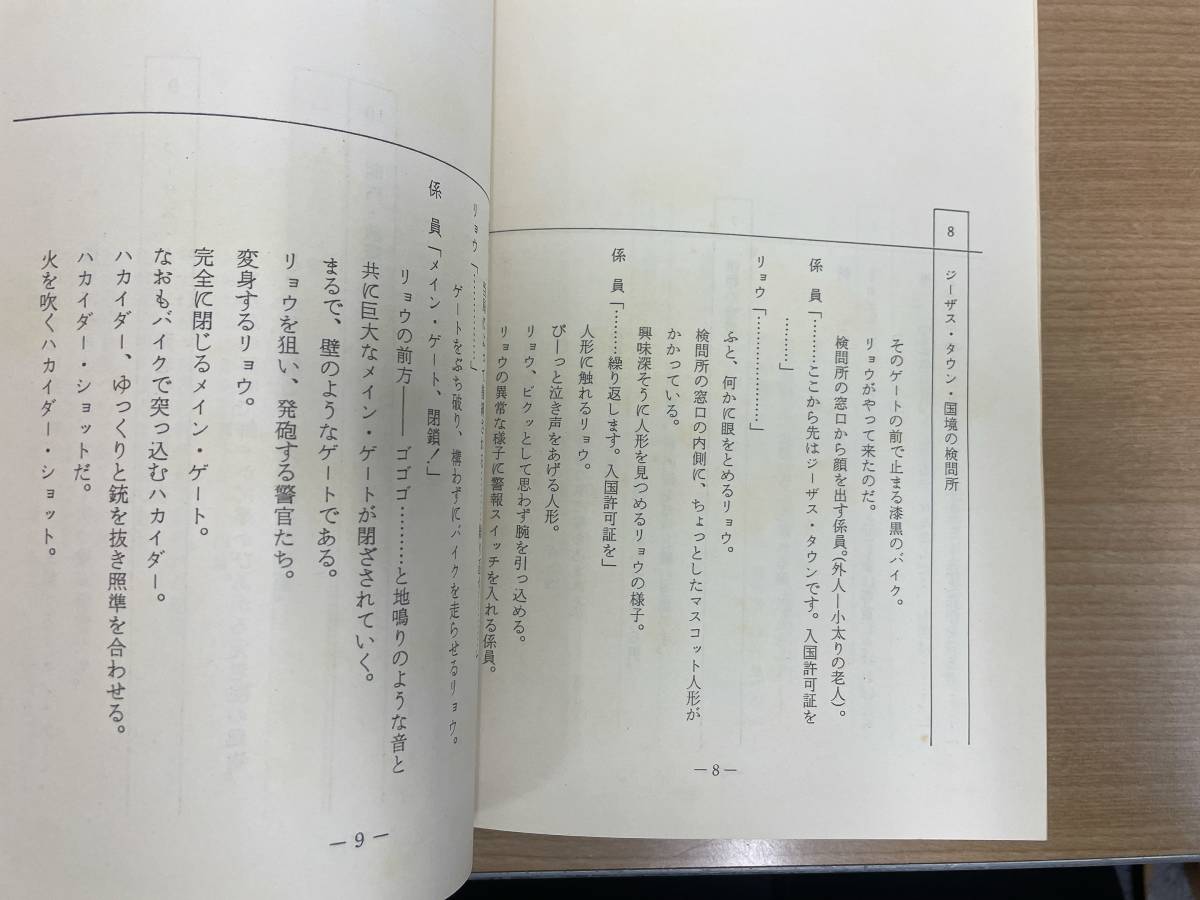 8
ジーザス・タウン・国境の検問所
そのゲートの前で止まる漆黒のバイク。
リョウがやって来たのだ。
検問所の窓口から顔を出す係員。(外人―小太りの老人)。
係員「………ここから先はジーザス・タウンです。入国許可証を
………」
リョウ「………………」
ふと、何かに眼をとめるリョウ。
検問所の窓口の内側に、ちょっとしたマスコット人形が
かかっている。
興味深そうに人形を見つめるリョウの様子。
係員「………繰り返します。入国許可証を」
人形に触れるリョウ。
ぴーっと泣き声をあげる人形。
リョウ、ビクッとして思わず腕を引っ込める。
リョウの異常な様子に警報スイッチを入れる係員。
―8―
リョウ「…………」
ゲートをぶち破り、構わずにバイクを走らせるリョウ。
係員「メイン・ゲート、閉鎖!」
リョウの前方――ゴゴゴ………と地鳴りのような音と
共に巨大なメイン・ゲートが閉ざされていく。
まるで、壁のようなゲートである。
リョウを狙い、発砲する警官たち。
変身するリョウ。
完全に閉じるメイン・ゲート。
なおもバイクで突っ込むハカイダー。
ハカイダー、ゆっくりと銃を抜き照準を合わせる。
ハカイダー・ショットだ。
火を吹くハカイダー・ショット。
―9―